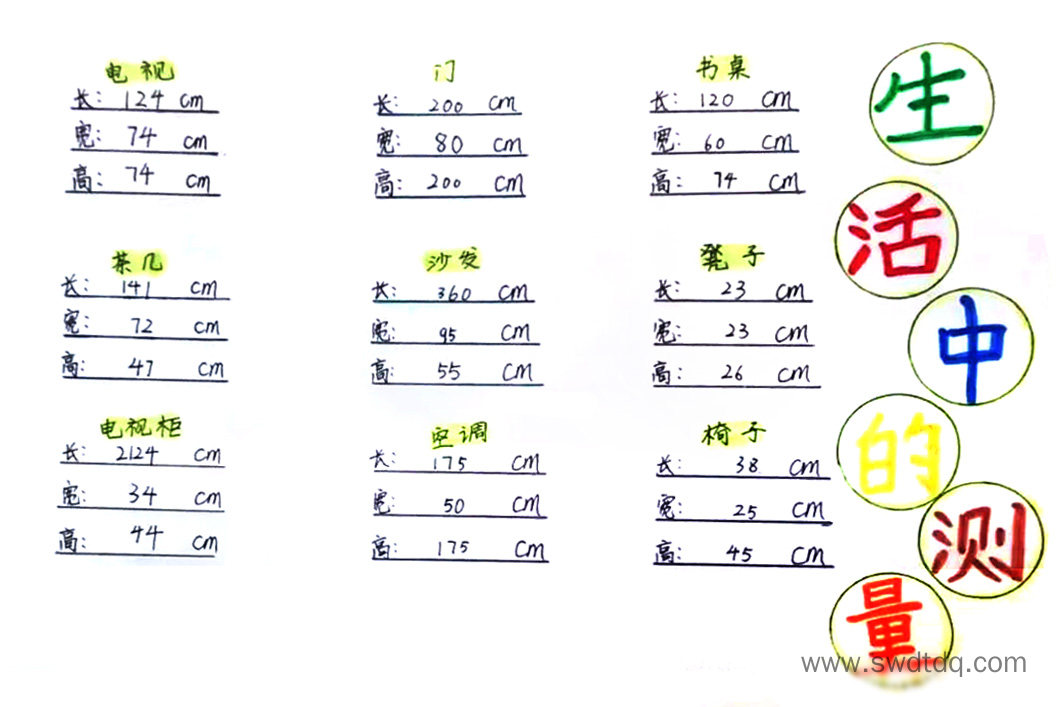 电视
长: 124 cm
宽: 74 cm
高: 74 cm
门
长: 200 cm
宽: 80 cm
高: 200 cm
书桌
长: 120 cm
宽: 60 cm
高: 74 cm
茶几
长: 141 cm
宽: 72 cm
高: 47 cm
沙发
长: 360 cm
宽: 95 cm
高: 55 cm
凳子
长: 23 cm
宽: 23 cm
高: 26 cm
电视柜
长: 2124 cm
宽: 34 cm
高: 44 cm
空调
长: 175 cm
宽: 50 cm
高: 175 cm
椅子
长: 38 cm
宽: 25 cm
高: 45 cm
生
活
中
的
测
量
www.swdtdq.com